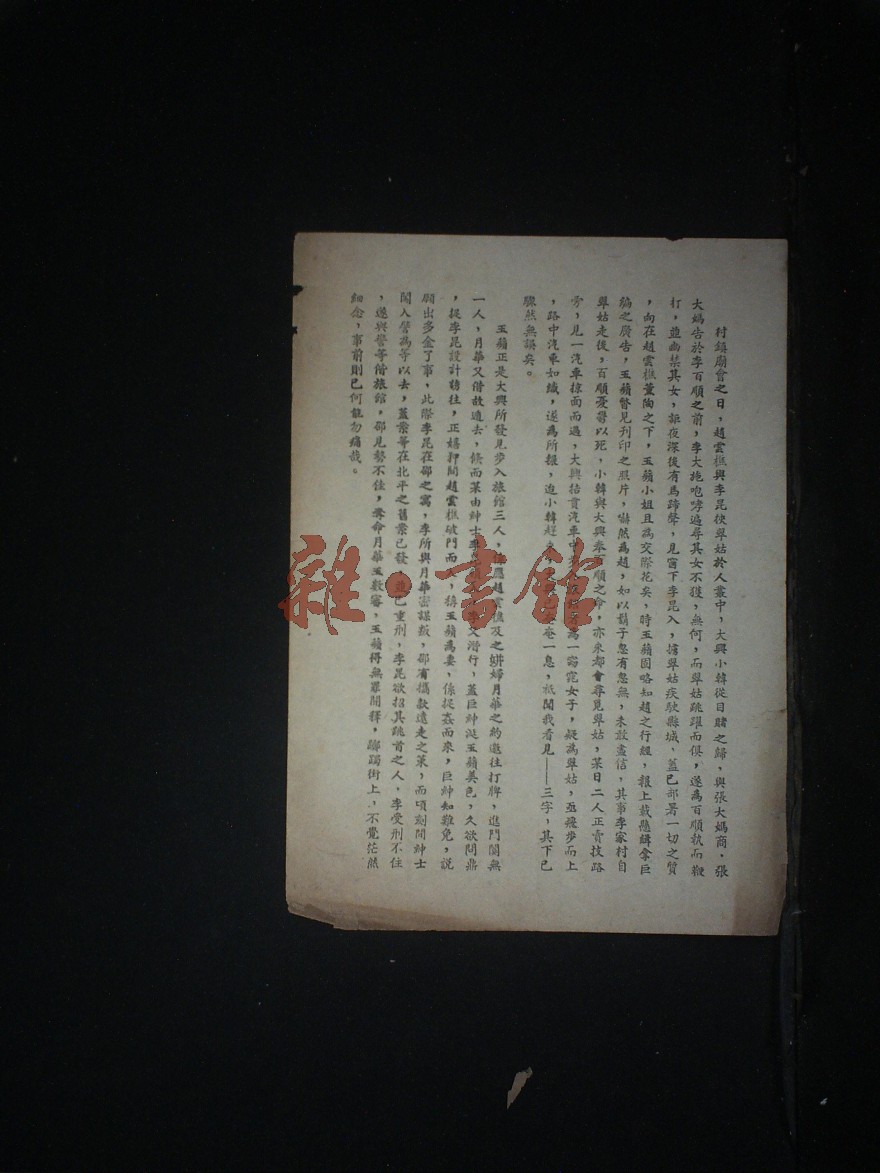 村鎮廟會之日，趙雲樵與李昆挾翠姑於人叢中，大興小韓從目賭之歸，與張大媽商，張
大媽告於李百順之前，李大施咆哮遍尋其女不獲，無何，而翠姑跳躍而俱，遂為百順執而鞭
打，並幽禁其女，詎夜深後有馬蹄聲，見窗下李昆入，擄翠姑疾駛縣城，蓋已部署一切之質
，向在趙雲樵董陶之下，玉蘋小姐且為交際花矣，時玉蘋固略知趙之行經，報上載懸緝拿巨
騙之廣告，玉蘋瞥見刋印之照片，嚇然為趙，如以鬍子忽有忽無，未敢盡信，其事李家村自
翠姑走後，百順憂鬱以死，小韓與大興奉百順之命，亦來都會尋覓翠姑，某日二人正賣技路
旁，見一汽車掠面而過，大興拮貰汽車中為一窈窕女子，疑為翠姑，亟飛步而上
，路中汽車如織，遂為所輾，迨小韓趕奄一息，祇聞我看見——三字，其下已
驟然無誤矣。
玉蘋正是大興所發見步入旅館三人，應趙雲樵及之姘婦月華之約邀往打牌，進門闃無
一人，月華又借故遁去，倏而某由紳士李父潛行，蓋巨紳涎玉蘋美色，久欲問鼎
，從李昆設計誘往，正嬉狎間趙雲樵破門而入，稱玉蘋為妻，係捉姦而來，巨紳知難免，說
願出多金了事，此際李昆在鄒之寓，李所與月華密謀叛，鄒有攜款遠走之策，而頃刻間紳士
闖入譬為等以去，蓋案等在北平之舊案已發，並已重刑，李昆欲招其跳首之人，李受刑不住
，遂與警等偕旅館，鄒見勢不佳，奪命月華玉數審，玉蘋得無罪開釋，躑躅街上，不覺茫然
細念，事前則已何能勿痛哉。
雜·書館